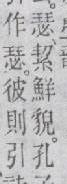 瑟。絜鮮貌。孔子
作瑟。彼則引